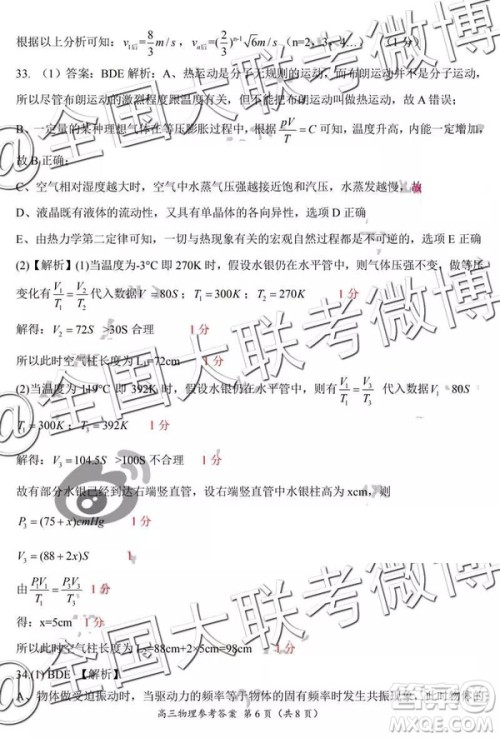 根据以上分析可知：v₁后=8/3 m/s，vₙ后=(2/3)ⁿ⁻¹√6m/s（n=2、3、4…）（1分）
33.（1）答案：BDE 解析：A、热运动是分子无规则的运动，而布朗运动并不是分子运动，
所以尽管布朗运动的激烈程度跟温度有关，但不能把布朗运动叫做热运动，故A错误；
B、一定量的某种理想气体在等压膨胀过程中，根据pV/T=C可知，温度升高，内能一定增加，
故B正确；
C、空气相对湿度越大时，空气中水蒸气压强越接近饱和汽压，水蒸发越慢。故
D、液晶既有液体的流动性，又具有光学各向异性，选项D正确
E、由热力学第二定律可知，一切与热现象有关的宏观自然过程都是不可逆的，选项E正确
(2)【解析】(1)当温度为-3°C即270K时，假设水银仍在水平管中，则气体压强不变，做等压
变化有V₁/T₁=V₂/T₂代入数据V=80S；T₁=300K；T₂=270K 1分
解得：V₂=72S >30S合理 1分
所以此时空气柱长度为L₁=72cm 1分
(2)当温度为119°C即392K时，假设水银仍在水平管中，则有V₁/T₁=V₃/T₃ 代入数据V₁=80S
T₁=300K；T₃=392K 1分
解得：V₃=104.5S >100S不合理 1分
故有部分水银已经到达右端竖直管，设右端竖直管中水银柱高为xcm，则
P₃=(75+x)cmHg 1分
V₃=(88+2x)S 1分
由P₁V₁/T₁=P₃V₃/T₃ 1分
得：x=5cm 1分
所以此时空气柱长度为L₂=88cm+2×5cm=98cm 1分
34.(1) BDE 【解析】
A、物体做受迫振动时，当驱动力的频率等于物体的固有频率时，发生共振现象，此时物体的
高三物理参考答案 第6页（共8页）
@全国大联考微博
@全国大联考微博